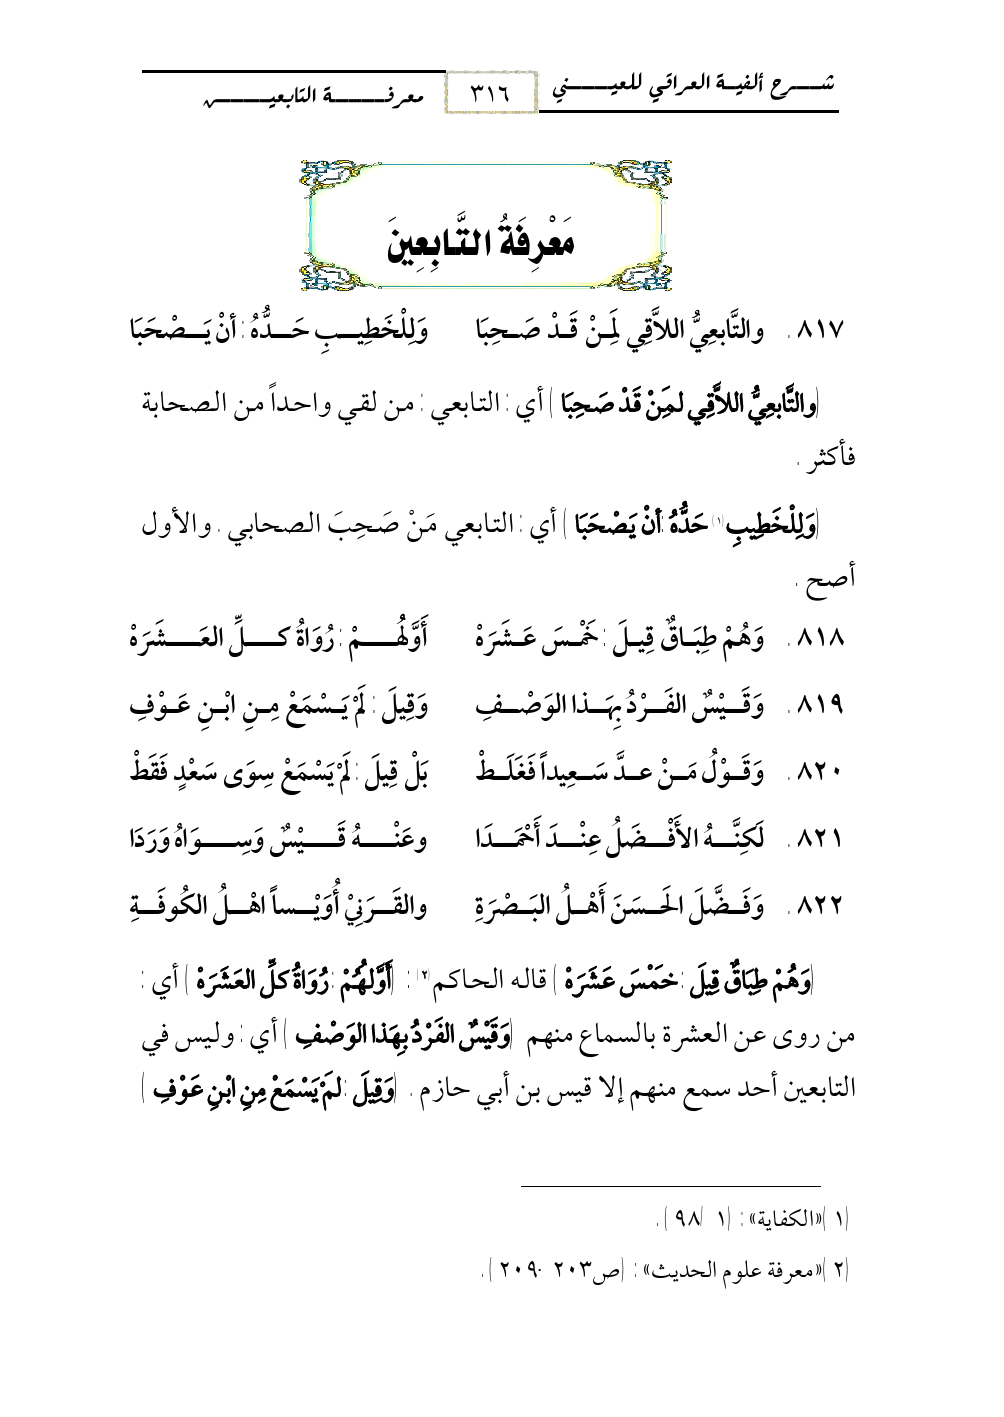 شـــرح ألفيـة العراقي للعيـــــني ٣١٦ معرفـــــــة التابعيـــــــن
مَعْرِفَةُ التَّابِعِينَ
٨١٧ . والتَّابعِيُّ اللاَّقِي لِمَنْ قَدْ صَحِبَا وَلِلْخَطِيبِ حَدُّهُ : أنْ يَصْحَبَا
(والتَّابعِيُّ اللاَّقِي لمَِنْ قَدْ صَحِبَا ) أي : التابعي : من لقي واحداً من الصحابة
فأكثر .
(وَلِلْخَطِيبِ(١) حَدُّهُ :أنْ يَصْحَبَا ) أي : التابعي مَنْ صَحِبَ الصحابي . والأول
أصح .
٨١٨ . وَهُمْ طِبَاقٌ قِيلَ : خَمْسَ عَشَرَهْ أَوَّلُهُمْ : رُوَاةُ كلِّ العَشَرَهْ
٨١٩ . وَقَيْسٌ الفَرْدُ بِهَذا الوَصْفِ وَقِيلَ : لَمْ يَسْمَعْ مِنِ ابْنِ عَوْفِ
٨٢٠ . وَقَوْلُ مَنْ عدَّ سَعِيداً فَغَلَطْ بَلْ قِيلَ : لَمْ يَسْمَعْ سِوَى سَعْدٍ فَقَطْ
٨٢١ . لَكِنَّهُ الأَفْضَلُ عِنْدَ أَحْمَدَا وعَنْهُ قَيْسٌ وَسِوَاهُ وَرَدَا
٨٢٢ . وَفَضَّلَ الحَسَنَ أَهْلُ البَصْرَةِ والقَرَنِيْ أُوَيْساً اهْلُ الكُوفَةِ
(وَهُمْ طِبَاقٌ قِيلَ :خمَْسَ عَشَرَهْ ) قاله الحاكم(٢) : (أَوَّلهُُمْ :رُوَاةُ كلِّ العَشَرَهْ ) أي :
من روى عن العشرة بالسماع منهم (وَقَيْسٌ الفَرْدُ بِهَذا الوَصْفِ ) أي : وليس في
التابعين أحد سمع منهم إلا قيس بن أبي حازم . (وَقِيلَ :لمَْ يَسْمَعْ مِنِ ابْنِ عَوْفِ )
(١ )«الكفاية» : (١ /٩٨ ) .
(٢ )«معرفة علوم الحديث» : (ص٢٠٣ -٢٠٩ ) .